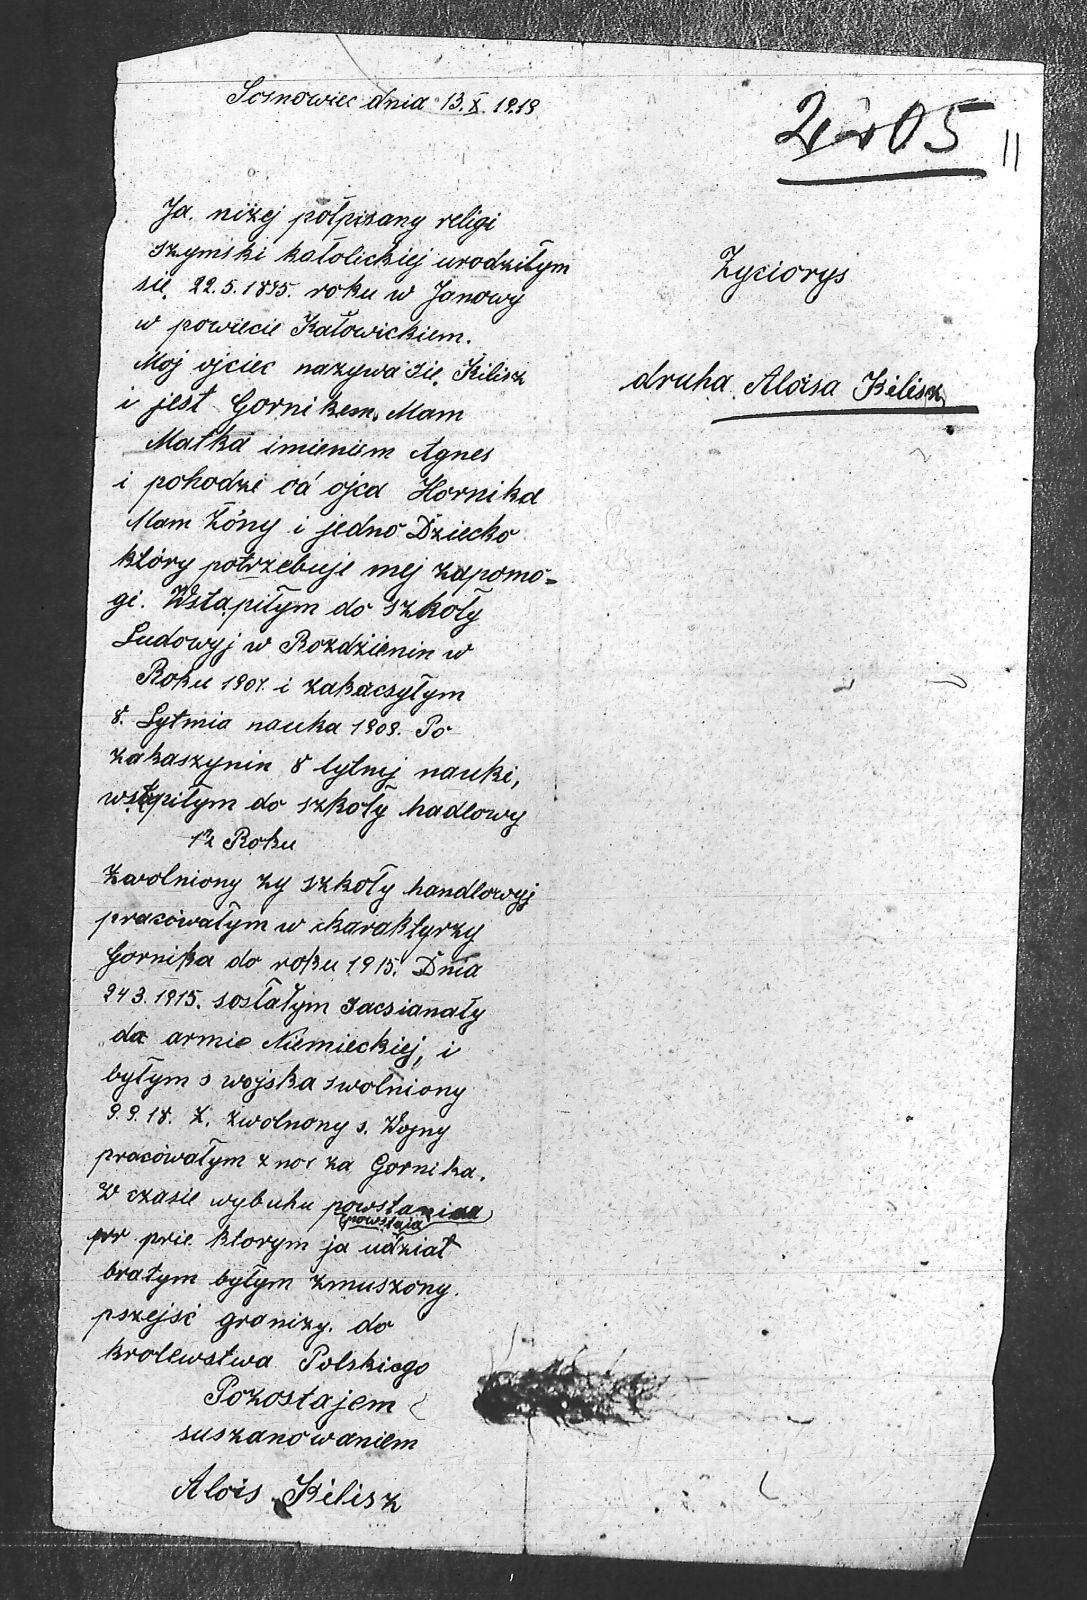 Sosnowiec dnia 13.X.1919
2205
11
Ja niżej połpisany religi
szymski katolickiej urodziłym
się 22.5.1895. roku w Janowy
w powiecie Katowickiem.
Moj ojciec nazywa sie Kilisz
i jest Gornikem. Mam
Matka imieniem Agnes
i pohodzi od ojca Hornika
Mam Żóny i jedno Dziecko
który potrzebuje mej zapomo=
gi. Wstąpiłym do szkoły
Ludowyj w Rozdzienin w
Roku 1901. i zakacsyłym
8. Lytmia nauka 1909. Po
zakaszynin 8 lytnyj nauki,
wstąpiłym do szkoły hadlowy
1½ Roku
Zwolniony zy szkoły handlowyj
pracowałym w charaktyrzy
Gornika do roku 1915. Dnia
24 3.1915. sostałym
do armie Niemieckiej, i
byłym s wojska swolniony
9.9.18. Z. zwolnony s. Wojny
pracówałym znor za Gornika.
W czasie wybuhu powstaniaa
(powstaja)
pr prie ktorym ja udział
brałym byłym zmuszony.
pszejsć granizy. do
krolewstwa Polskiego
Pozostajem
suszanowaniem
Alois Kilisz
Zyciorys
druha Aloisa Kilisza